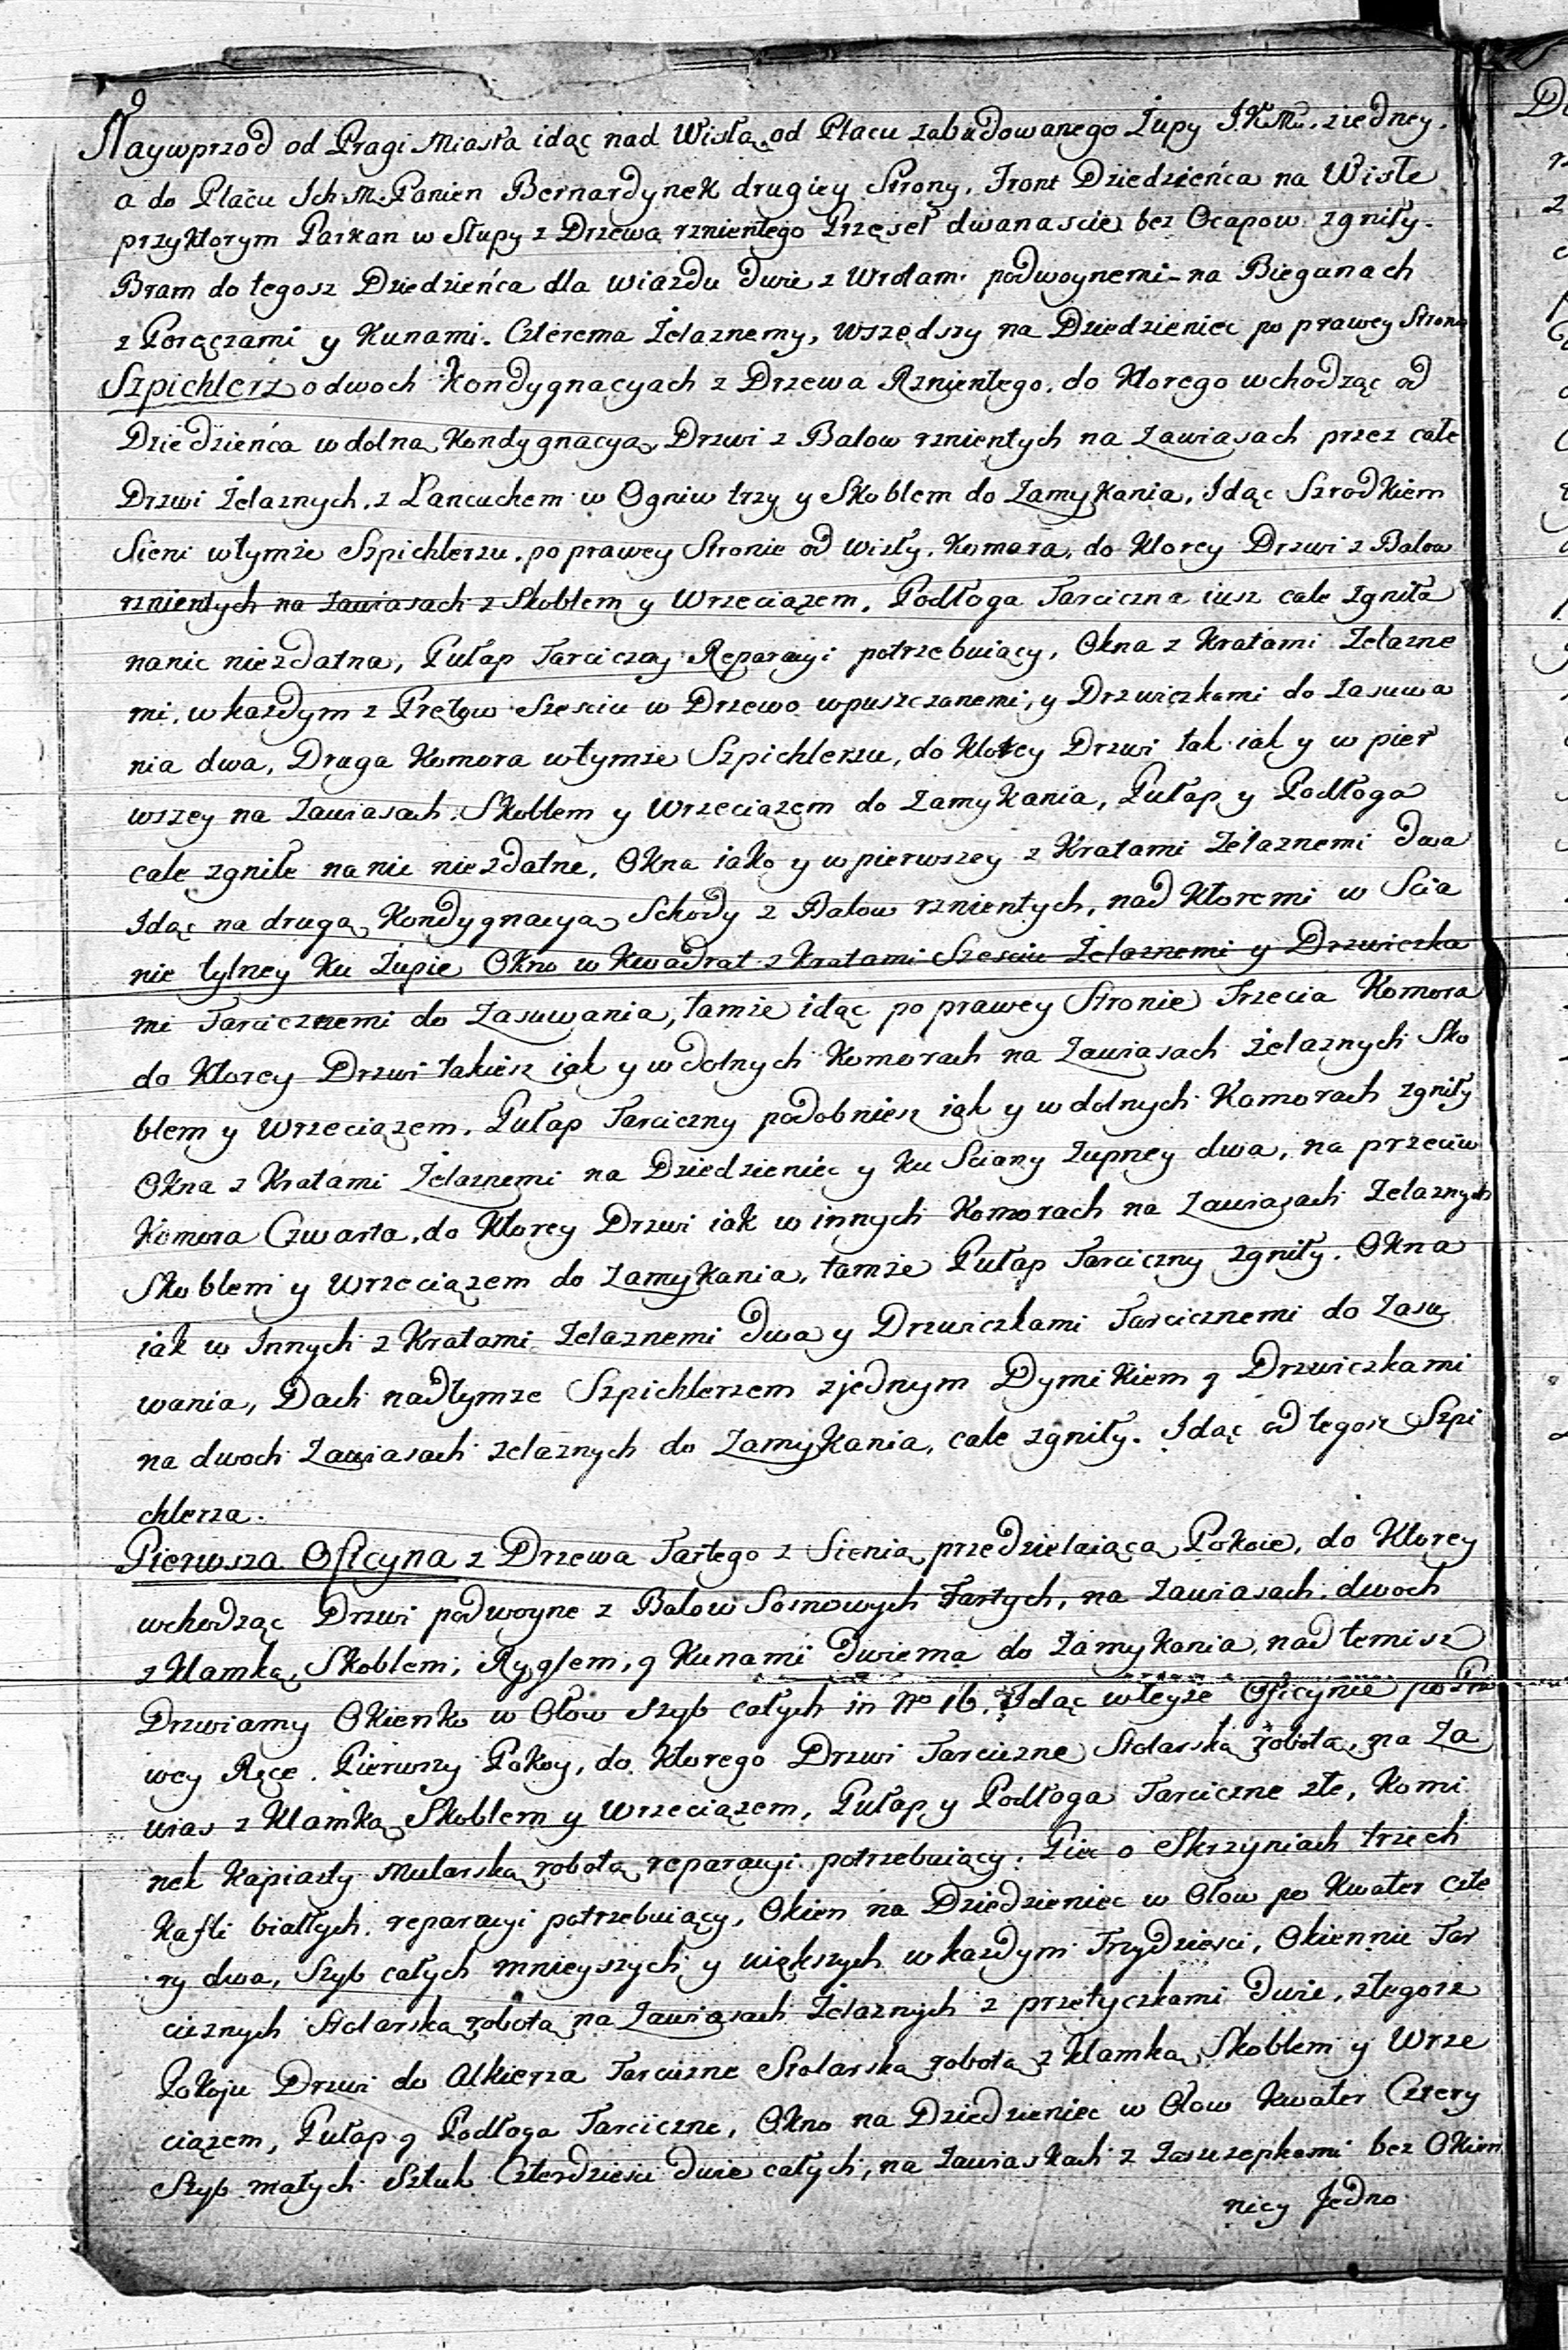 Naywprzod od Pragi Miasta idąc nad Wisłą od Placu zabudowanego Żupy J.K.M. ziedney,
a do Placu Ich M. Panien Bernardynek drugiey Strony, Front Dziedzieńca na Wisłe
przyktorym Parkan w Słupy z Drzewa rznientego Przęseł dwanascie bez Ocapow zgniły.
Bram do tegosz Dziedzieńca dla wiazdu dwie z Wrotami podwoynemi na Biegunach
z Poręczami y Kunami Czterema Żelaznemy, wszedszy na Dziedzieniec po prawey Stronie
Szpichlerz o dwoch Kondygnacyach z Drzewa Rznientego, do Ktorego wchodząc od
Dziedzieńca w dolną Kondygnacyą Drzwi z Balow rznientych na Zawiasach przez całe
Drzwi Żelaznych, z Lancuchem w Ogniw trzy y Skoblem do Zamykania, Idąc Szrodkiem
Sieni wtymże Szpichlerzu, po prawey Stronie od Wisły, Komara, do Ktorey Drzwi z Balow
rznientych na zawiasach z Skoblem y Wrzeciązem, Podłoga Tarciczna iusz cale zgniła
nanic niezdatna, Pułap Tarciczny Reparacyi potrzebuiący, Okna z Kratami Żelazne
mi, w kazdym z Prętow Szesciu w Drzewo wpuszczanemi, y Drzwiczkami do Zasuwa
nia dwa, Druga Komora wtymże Szpichlerzu, do Ktorey Drzwi tak iak y w pier
wszey na Zawiasach, Skoblem y Wrzeciązem do Zamykania, Pułap y Podłoga
cale zgniłe na nic niezdatne, Okna iako y w pierwszey z Kratami Żelaznemi dwa
Idąc na drugą Kondygnacyą Schody z Balow rznientych, nad Ktoremi w Scia
nie tylney ku Żupie Okno w Kwadrat z Kratami Szesciu Żelaznemi y Drzwiczka
mi Tarcicznemi do Zasuwania, tamże idąc po prawey Stronie Trzecia Komora
do Ktorey Drzwi takiesz iak y w dolnych Komorach na Zawiasach żelaznych Sko
blem y Wrzeciązem, Pułap Tarciczny podobniesz iak y w dolnych Komorach zgniły
Okna z Kratami Żelaznemi na Dziedzieniec y ku Sciany Żupney dwa, na przeciw
Komora Czwarta, do Ktorey Drzwi iak w innych Komorach na Zawiasach Żelaznych
Skoblem y Wrzeciązem do zamykania, tamże Pułap Tarciczny zgniły, Okna
iak w Innych z Kratami Żelaznemi dwa y Drzwiczkami Tarcicznemi do Zasu
wania, Dach nadtymze Szpichlerzem zjednym Dymikiem y Drzwiczkami
na dwoch Zawiasach żelaznych do Zamykania, cale zgniły. Idąc od tegosz Szpi
chlerza.
Pierwsza Oficyna z Drzewa Tartego z Sienią przedzielaiącą Pokoie, do Ktorey
wchodząc Drzwi podwoyne z Balow Sosnowych Tartych, na Zawiasach dwoch
z Klamką Skoblem, Ryglem, y Kunami dwiema do Zamykania, nad temisz
Drzwiamy Okienko w Ołow szyb całych in No 16. Idąc wteyże Oficynie po Pra
wey Ręce Pierwszy Pokoy, do Ktorego Drzwi Tarciczne Stolarską robotą, na Za
wias z Klamką Skoblem y Wrzeciązem, Pułap y Podłoga Tarciczne złe, Komi
nek Kapiasty Mularską robotą reparacyi potrzebuiący. Piec o Skrzyniach trzech
Kafli białych reparacyi potrzebuiący, Okien na Dziedzieniec w Ołow po Kwater czte
ry dwa, Szyb całych mnieyszych y większych w kazdym Trzydziesci, Okiennic Tar
cicznych Stolarską robotą na Zawiasach Żelaznych z przetyczkami dwie, ztegosz
Pokoju Drzwi do Alkierza Tarciczne Stolarską robotą z Klamką Skoblem y Wrze
ciązem, Pułap y Podłoga Tarciczne, Okno na Dziedzieniec w Ołow Kwater Cztery
Szyb małych Sztuk Czterdziesci dwie całych, na Zawiaskach z Zaszczepkami bez Okien
nicy Jedno